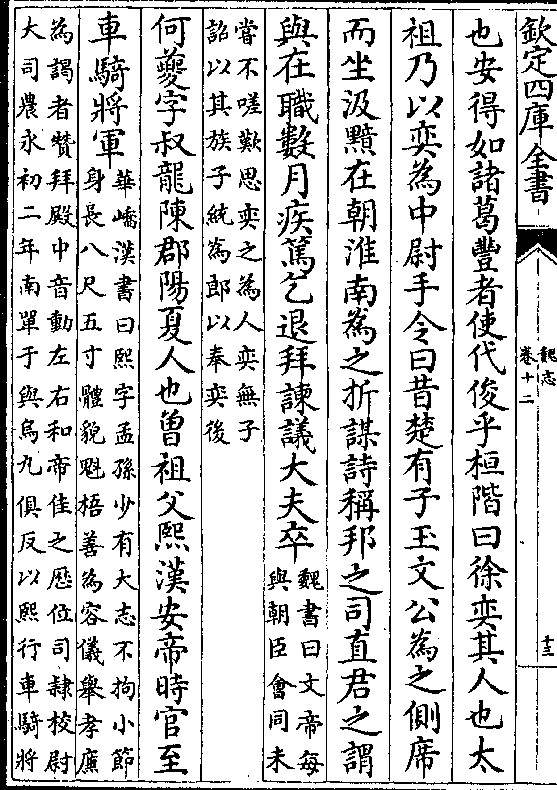 欽定四庫全書
魏志
卷十二
十三
也安得如諸葛豐者使代俊乎桓階曰徐奕其人也太
祖乃以奕為中尉手令曰昔楚有子玉文公為之側席
而坐汲黯在朝淮南為之折謀詩稱邦之司直君之謂
與在職數月疾篤乞退拜諫議大夫卒
魏書曰文帝每
與朝臣會同未
嘗不嗟歎思奕之為人奕無子
詔以其族子統為郎以奉奕後
何夔字叔龍陳郡陽夏人也曾祖父熙漢安帝時官至
車騎將軍
華嶠漢書曰熙字孟孫少有大志不拘小節
身長八尺五寸體貌魁梧善為容儀舉孝廉
為謁者贊拜殿中音動左右和帝佳之歷位司隷校尉
大司農永初二年南單于與烏丸俱反以熙行車騎將